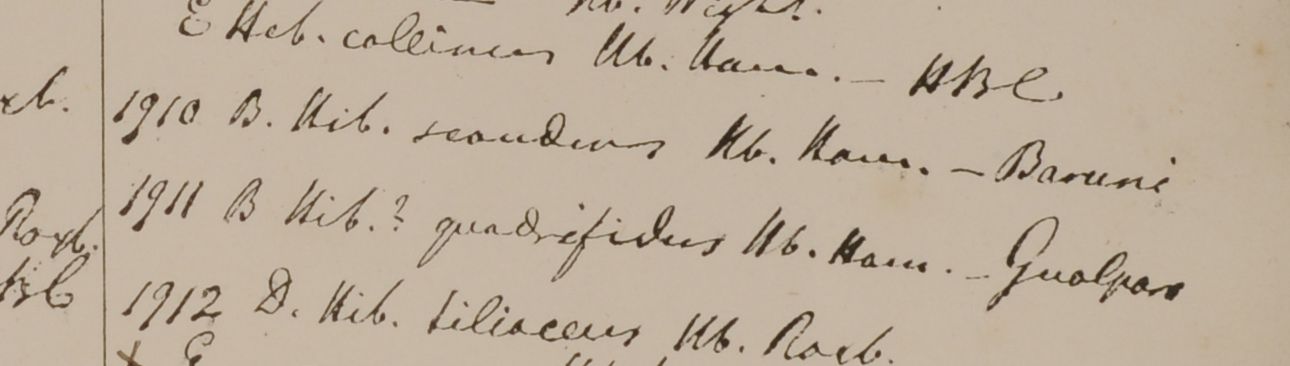 Hb. Wight.
E Hib. collinus Hb. Ham. — HBC
xb.
1910 B. Hib. scandens Hb. Ham. — Baruni
1911 B Hib.? quadrifidus Hb. Ham. — Gualpara
Roxb.
1912 D. Hib. tiliaceus Hb. Roxb.
E